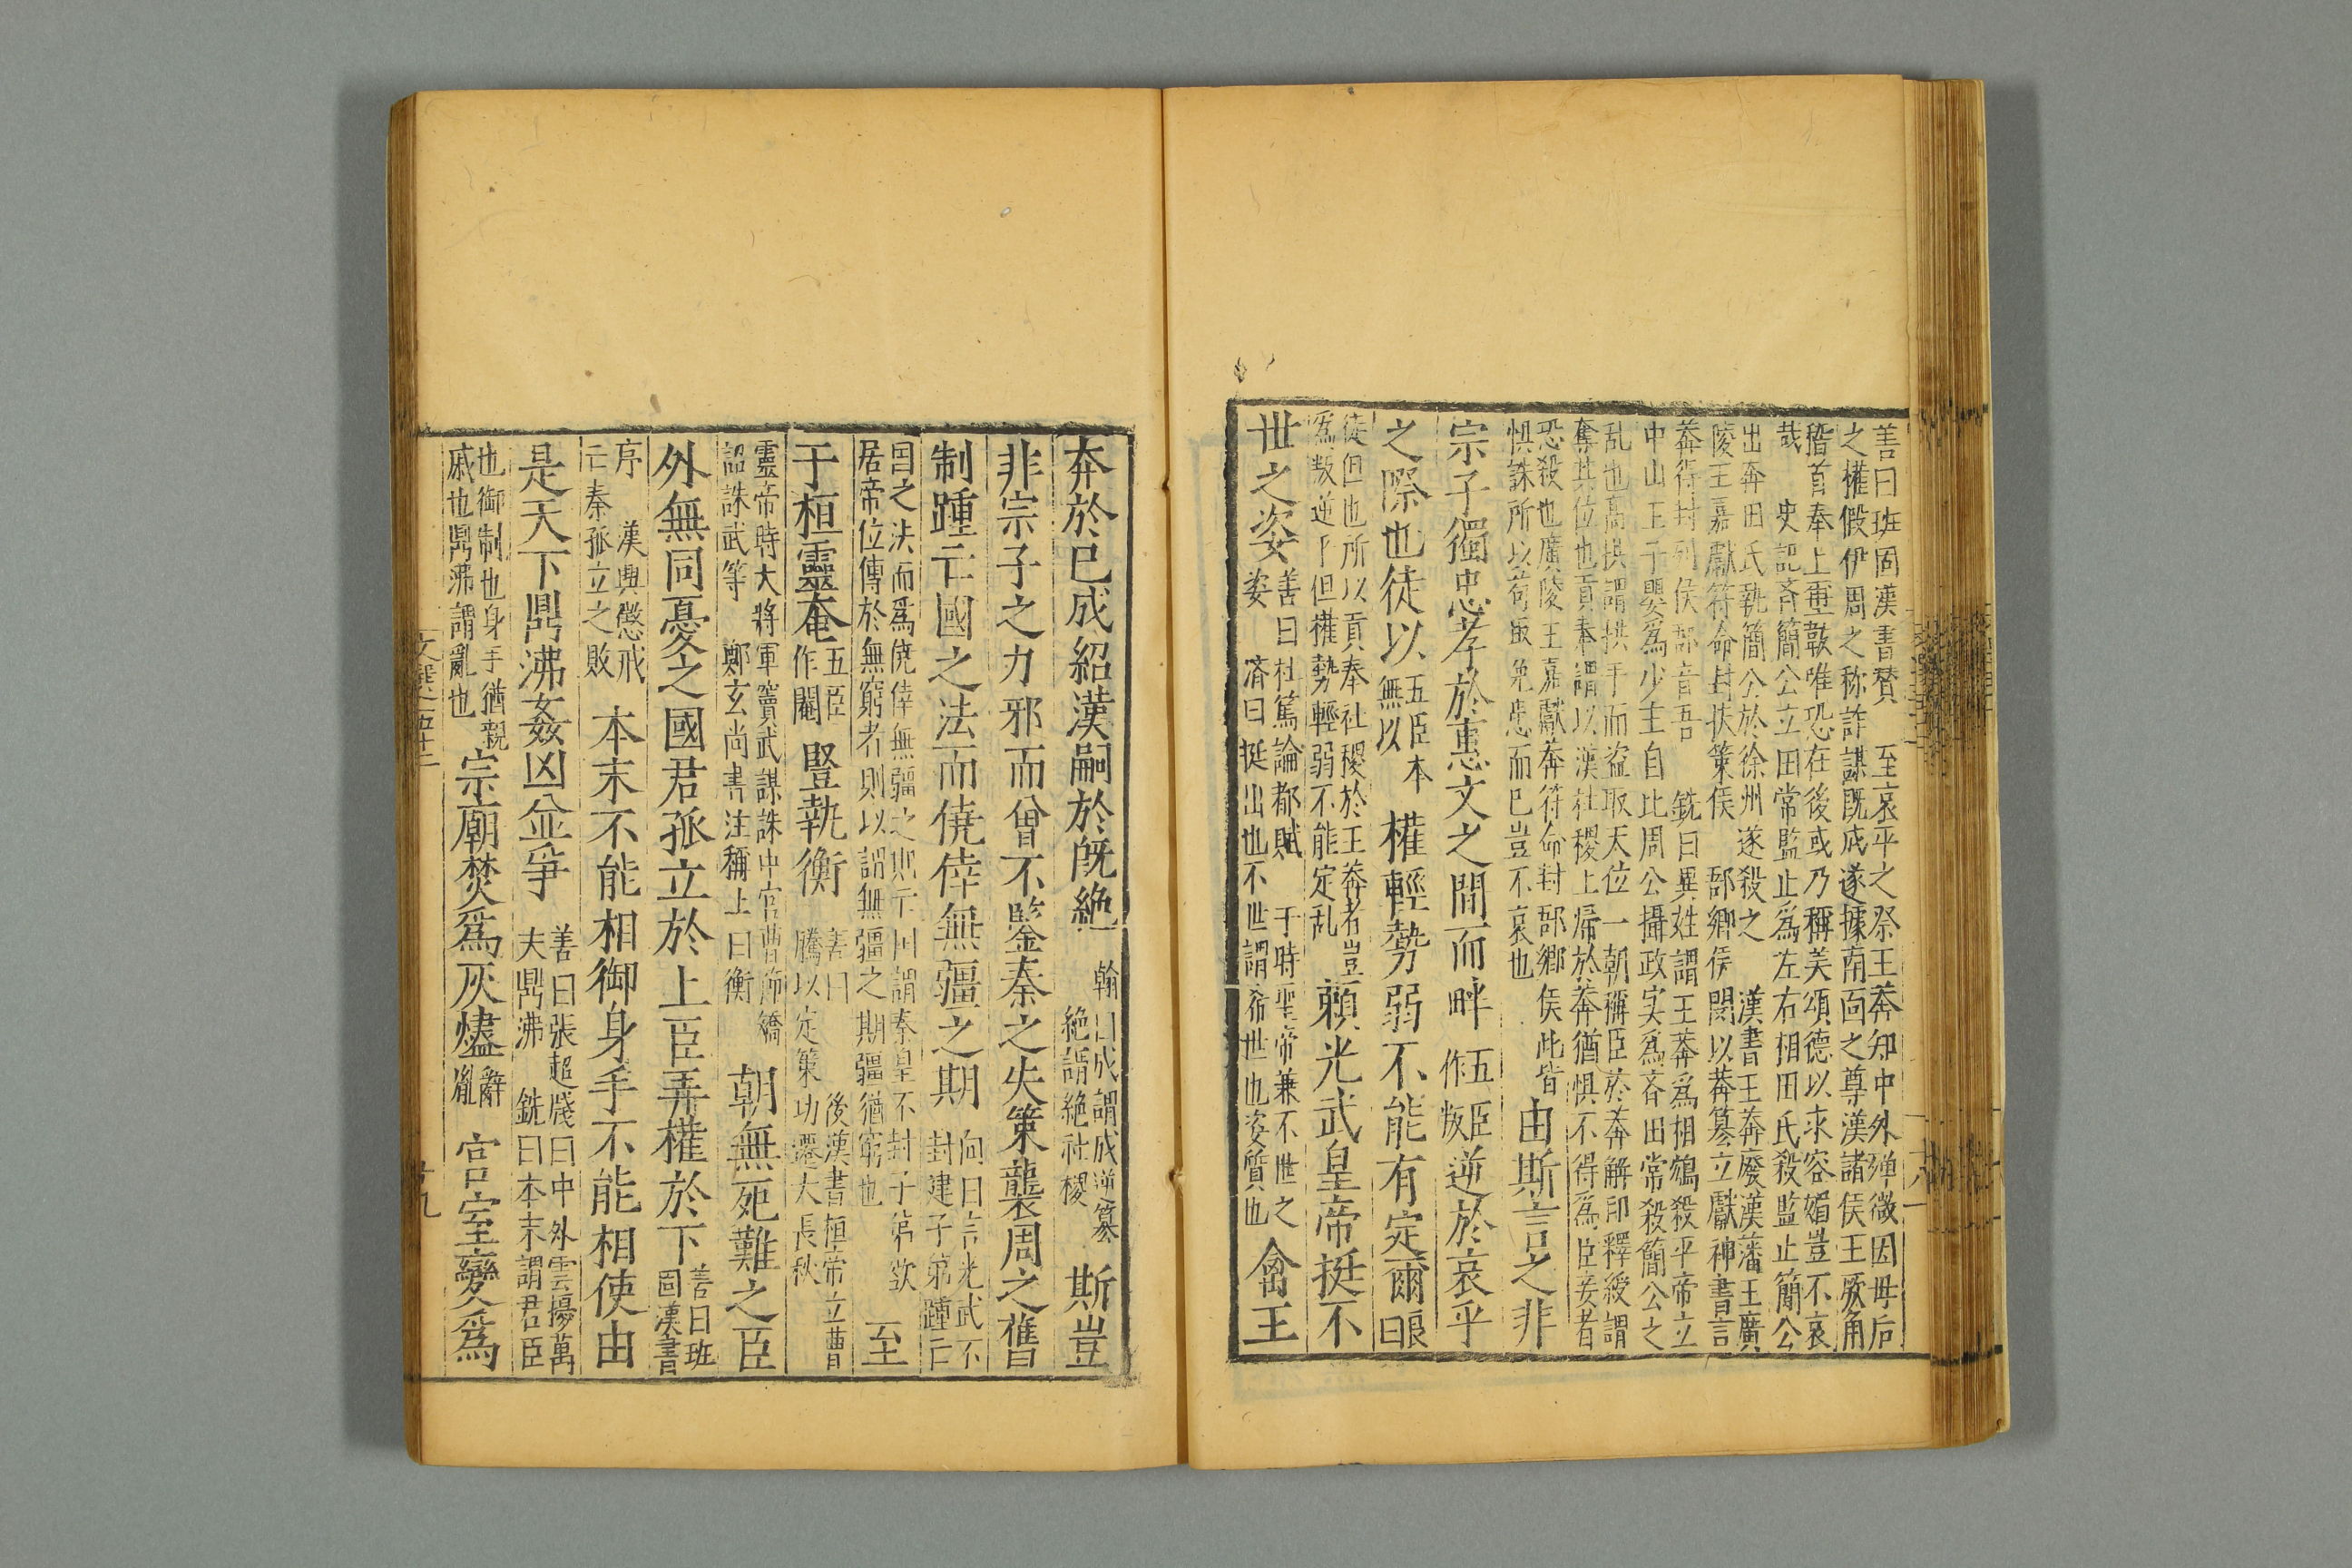 善曰班固漢書賛　至哀平之祭王莽知中外殫㣲因母后
之權假伊周之称詐謀既成遂據南面之尊漢諸侯王厥角
稽首奉上璽韍唯恐在後或乃稱美頌德以求容媚豈不哀
哉　史記斉簡公立田常監止爲左右相田氏殺監止簡公
出奔田氏執簡公於徐州遂殺之　漢書王莽廢漢藩王廣
陵王嘉獻符命封扶策侯　郚鄉侯閔以莽篡立獻神書言
莽得封列侯郚音吾　銑曰異姓謂王莽爲相鴆殺平帝立
中山王子嬰爲少主自比周公攝政实爲斉田常殺簡公之
乱也高拱謂拱手而盗取天位一朝稱臣於莽解印釋綬謂
奪其位也貢奉謂以漢社稷上帰於莽猶惧不得爲臣妾者
恐殺也廣陵王嘉獻莽符命封郚鄉侯此皆
惧誅所以苟取免患而已豈不哀也
由斯言之非
宗子獨忠孝於惠文之間而畔五臣作叛逆於哀平
之際也徒以五臣本無以權輕勢弱不能有定爾良曰
徒但也所以貢奉社稷於王莽者豈
爲叛逆乎但權勢輕弱不能定乱
頼光武皇帝挺不
世之姿善曰杜篤論都賦　于時聖帝兼不世之
姿　济曰挺出也不世謂希世也姿質也
禽王
莽於已成紹漢嗣於既絶翰曰成謂成逆篡
絶謂絶社稷
斯豈
非宗子之力邪而曾不鑒秦之失策襲周之舊
制踵亡國之法而僥倖無疆之期向曰言光武不
封建子弟踵亡
国之法而爲僥倖無疆之期亡国謂秦皇不封子弟欲
居帝位傳於無窮者則以謂無疆之期疆猶窮也
至
于桓靈奄五臣作閹豎執衡善曰　後漢書桓帝立曹
騰以定策功遷大長秋
靈帝時大將軍竇武謀誅中官曹節矯
詔誅武等　鄭玄尚書注稱上曰衡
朝無死難之臣
外無同憂之國君孤立於上臣弄權於下善曰班
固漢書
序　漢興懲戒
亡秦孤立之敗
本末不能相御身手不能相使由
是天下鼎沸姦凶並爭善曰張超牋曰中外雲擾萬
夫鼎沸　銑曰本末謂君臣
也御制也身手猶親
戚也鼎沸謂亂也
宗廟焚爲灰燼辭胤宫室變爲
文選卷五十二
十九